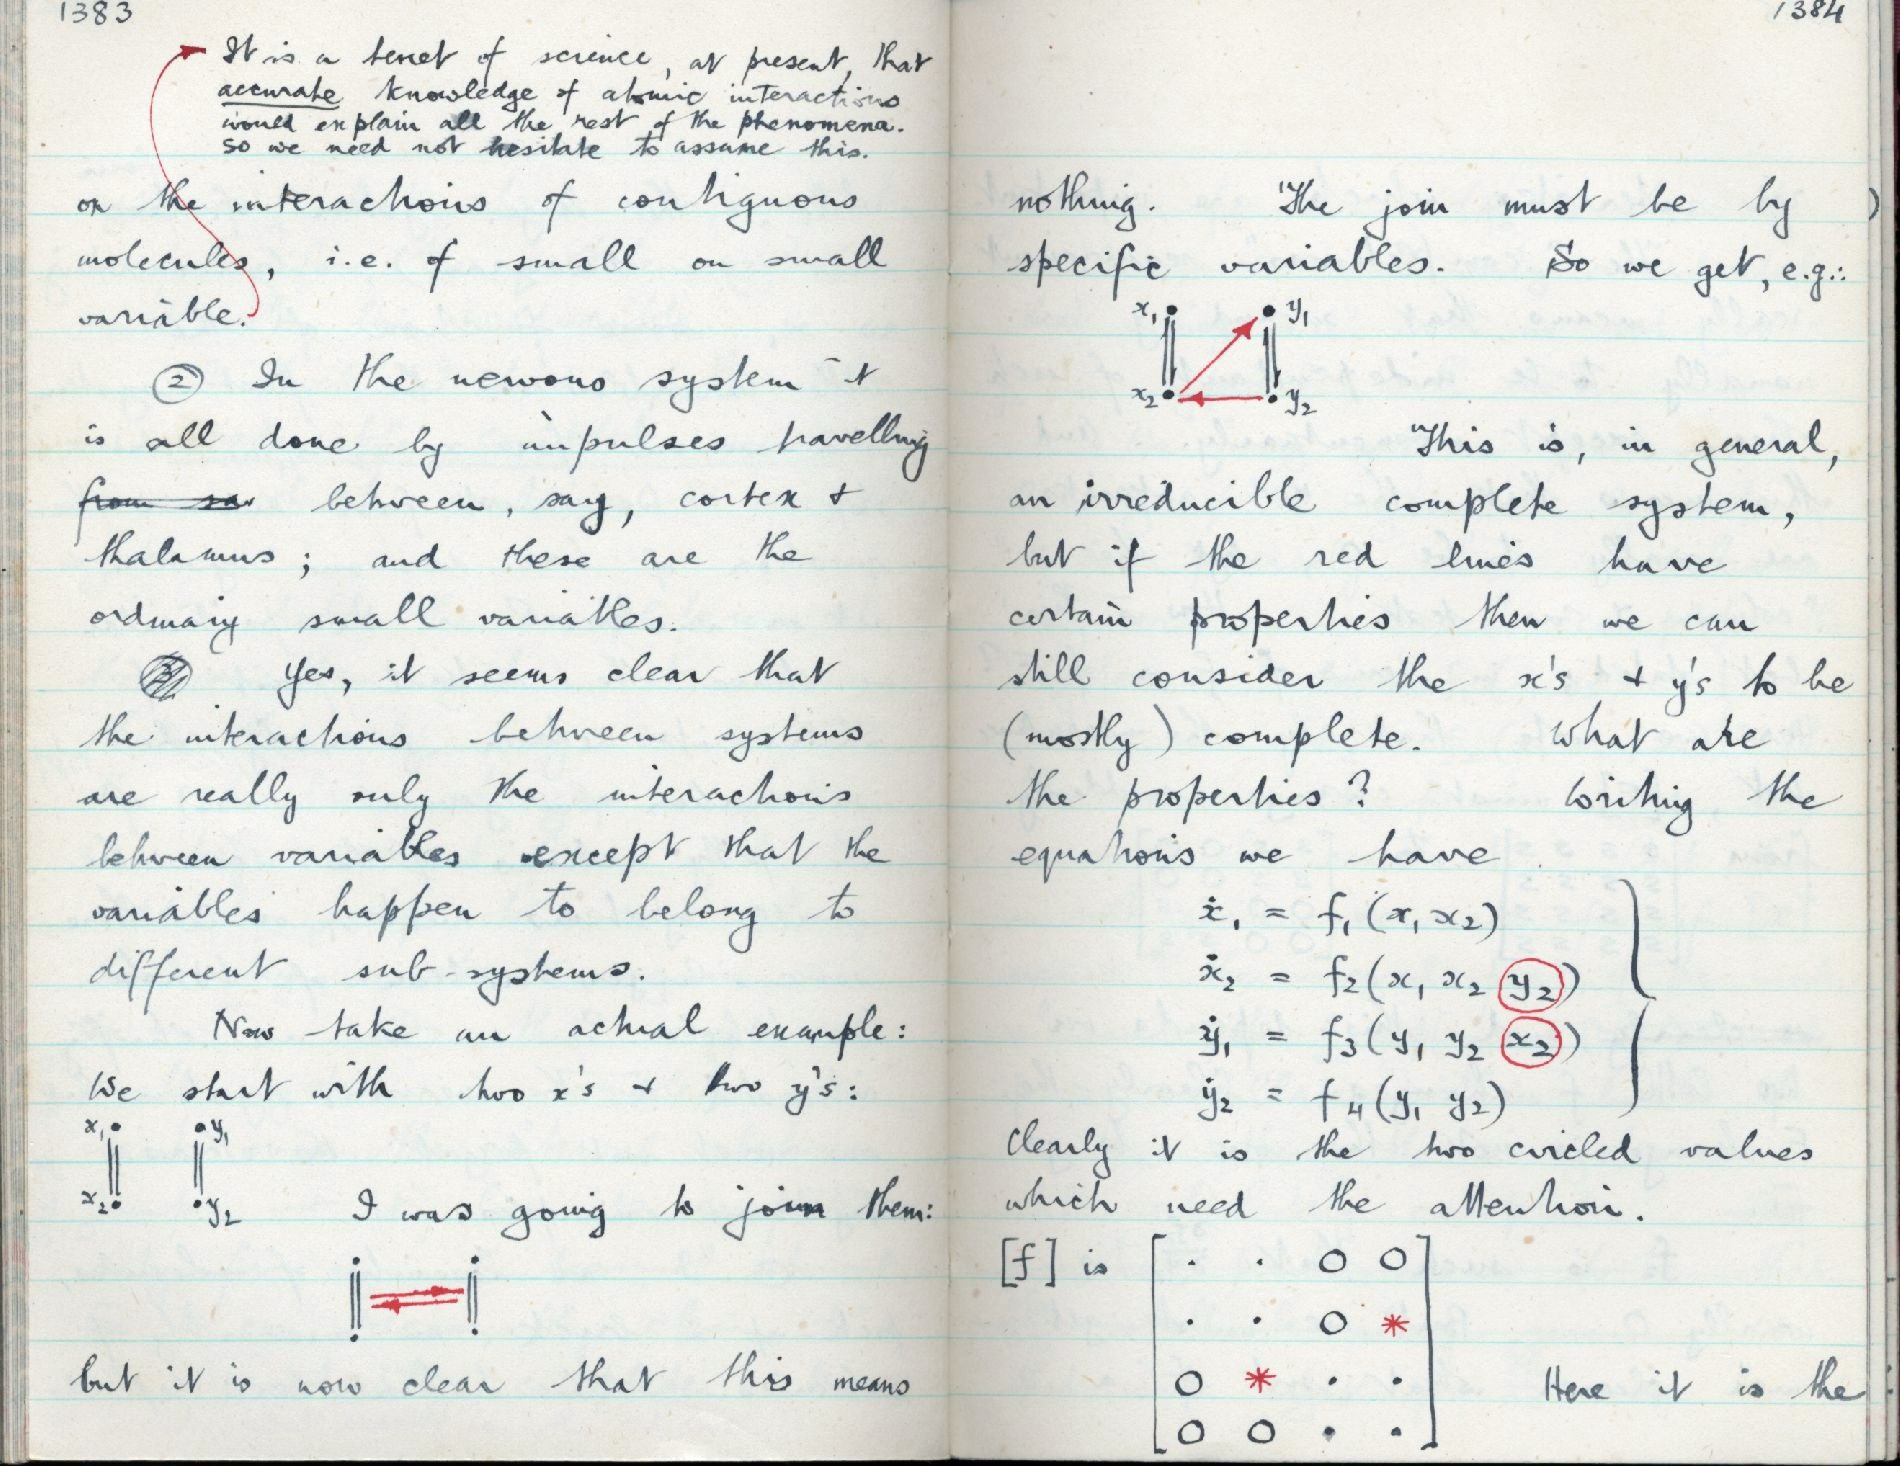 1383
It is a tenet of science, at present, that
accurate knowledge of atomic interactions
would explain all the rest of the phenomena.
So we need not hesitate to assume this.
on the interactions of contiguous
molecules, i.e. of small on small
variable.
② In the nervous system it
is all done by impulses travelling
from sa between, say, cortex +
thalamus; and these are the
ordinary small variables.
Yes, it seems clear that
the interactions between systems
are really only the interactions
between variables except that the
variables happen to belong to
different sub-systems.
Now take an actual example:
We start with two x's + two y's:
x₁ y₁
x₂ y₂ I was going to join them:
but it is now clear that this means
1384
nothing. The join must be by
specific variables. So we get, e.g.:
x₁ y₁
x₂ y₂
This is, in general,
an irreducible complete system,
but if the red lines have
certain properties then we can
still consider the x's + y's to be
(mostly) complete. What are
the properties? Writing the
equations we have
ẋ₁ = f₁(x₁ x₂)
ẋ₂ = f₂(x₁ x₂ y₂)
ẏ₁ = f₃(y₁ y₂ x₂)
ẏ₂ = f₄(y₁ y₂)
Clearly it is the two circled values
which need the attention.
[f] is [ . . 0 0
. . 0 *
0 * . .
0 0 . . ] Here it is the